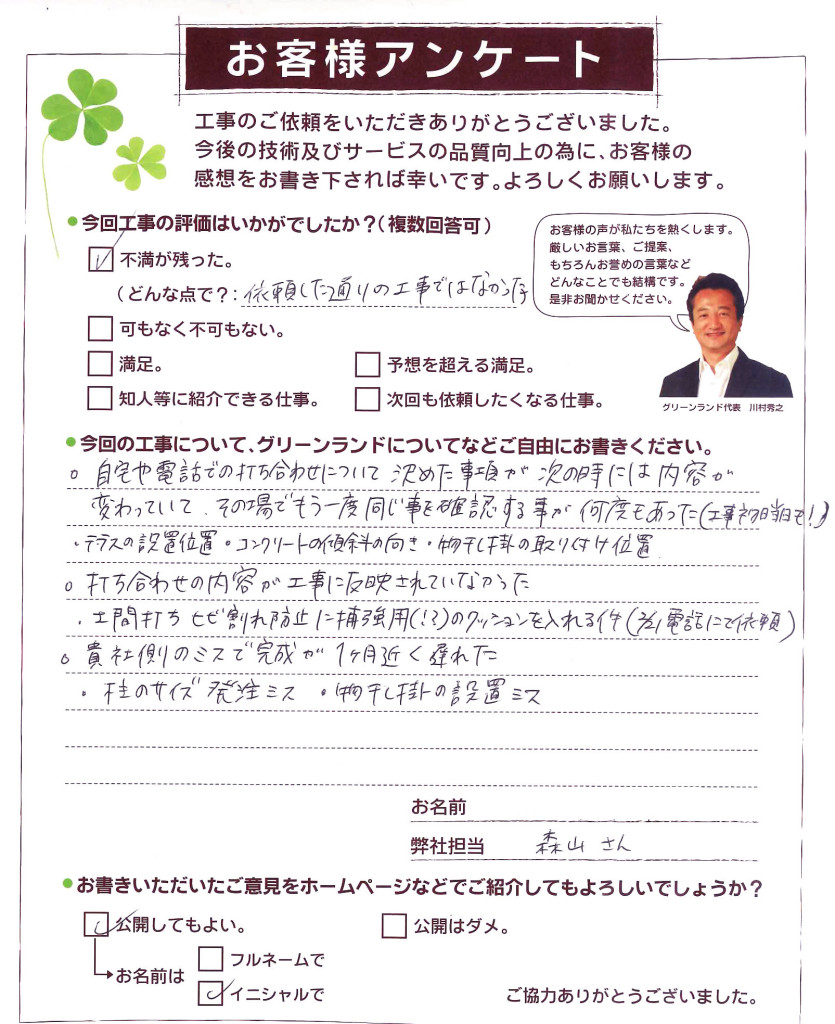 お客様アンケート
工事のご依頼をいただきありがとうございました。
今後の技術及びサービスの品質向上の為に、お客様の
感想をお書き下されば幸いです。よろしくお願いします。
●今回工事の評価はいかがでしたか？（複数回答可）
お客様の声が私たちを熱くします。
厳しいお言葉、ご提案、
もちろんお誉めの言葉など
どんなことでも結構です。
是非お聞かせください。
☑ 不満が残った。
（どんな点で？：依頼した通りの工事ではなかった
□ 可もなく不可もない。
□ 満足。 □ 予想を超える満足。
□ 知人等に紹介できる仕事。 □ 次回も依頼したくなる仕事。
グリーンランド代表 川村秀之
●今回の工事について、グリーンランドについてなどご自由にお書きください。
○ 自宅や電話での打ち合わせについて 決めた事項が 次の時には内容が
変わっていて、その場でもう一度同じ事を確認する事が 何度もあった(工事初日当日も!)
・テラスの設置位置・コンクリートの傾斜の向き・物干し掛の取り付け位置
○ 打ち合わせの内容が工事に反映されていなかった
・土間打ち ヒビ割れ防止に補強用(!?)のクッションを入れる件(電話にて依頼)
○ 貴社側のミスで完成が 1ヶ月近く遅れた
・柱のサイズ 発注ミス ・物干し掛の設置ミス
お名前
弊社担当 森山 さん
●お書きいただいたご意見をホームページなどでご紹介してもよろしいでしょうか？
☑ 公開してもよい。 □ 公開はダメ。
お名前は □ フルネームで
☑ イニシャルで
ご協力ありがとうございました。